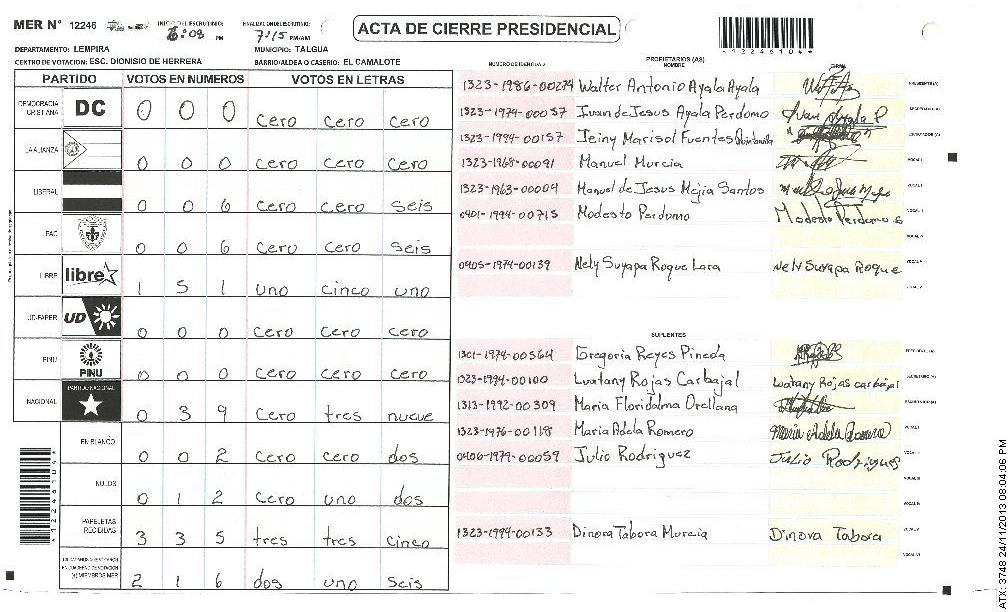 MER N° 12246
INICIO DEL ESCRUTINIO: PM
FINALIZACION DEL ESCRUTINIO: 7:15 PM/AM
ACTA DE CIERRE PRESIDENCIAL
*12246104*
DEPARTAMENTO: LEMPIRA MUNICIPIO: TALGUA
CENTRO DE VOTACION: ESC. DIONISIO DE HERRERA BARRIO/ALDEA O CASERIO: EL CAMALOTE
PARTIDO VOTOS EN NUMEROS VOTOS EN LETRAS
DEMOCRACIA CRISTIANA DC 0 0 0 cero cero cero
LA ALIANZA 0 0 0 cero cero cero
LIBERAL 0 0 6 cero cero seis
PAC 0 0 6 cero cero seis
LIBRE libre 1 5 1 uno cinco uno
UD-FAPER UD 0 0 0 cero cero cero
PINU PINU 0 0 0 cero cero cero
NACIONAL PARTIDO NACIONAL 0 3 9 cero tres nueve
EN BLANCO 0 0 2 cero cero dos
NULOS 0 1 2 cero uno dos
PAPELETAS RECIBIDAS 3 3 5 tres tres cinco
(+) MIEMBROS MER 2 1 6 dos uno seis
*12246104*
PROPIETARIOS (AS)
NUMERO DE IDENTIDAD NOMBRE FIRMA
1323-1986-00274 Walter Antonio Ayala Ayala PRESIDENTE (A)
1323-1974-00057 Juan de Jesus Ayala Perdomo Juan Ayala P SECRETARIO (A)
1323-1994-00157 Jeiny Marisol Fuentes ESCRUTADOR (A)
1323-1968-00091 Manuel Murcia VOCAL I
1323-1963-00004 Manuel de Jesus Mejia Santos VOCAL II
0401-1994-00715 Modesto Perdomo Modesto Perdomo VOCAL III
0405-1974-00139 Nely Suyapa Roque Lara Nely Suyapa Roque VOCAL V
SUPLENTES
1301-1974-00364 Gregoria Reyes Pineda PRESIDENTE (A)
1323-1994-00100 Luatany Rojas Carbajal Luatany Rojas carbajal SECRETARIO (A)
1313-1992-00309 Maria Floridalma Orellana ESCRUTADOR (A)
1323-1976-00118 Maria Adela Romero Maria Adela Romero VOCAL I
0406-1979-00059 Julio Rodriguez Julio Rodriguez VOCAL II
VOCAL III
VOCAL IV
1323-1994-00133 Dinora Tabora Murcia Dinora Tabora VOCAL V
VOCAL VI
ATX: 3748 24/11/2013 08:04:06 PM